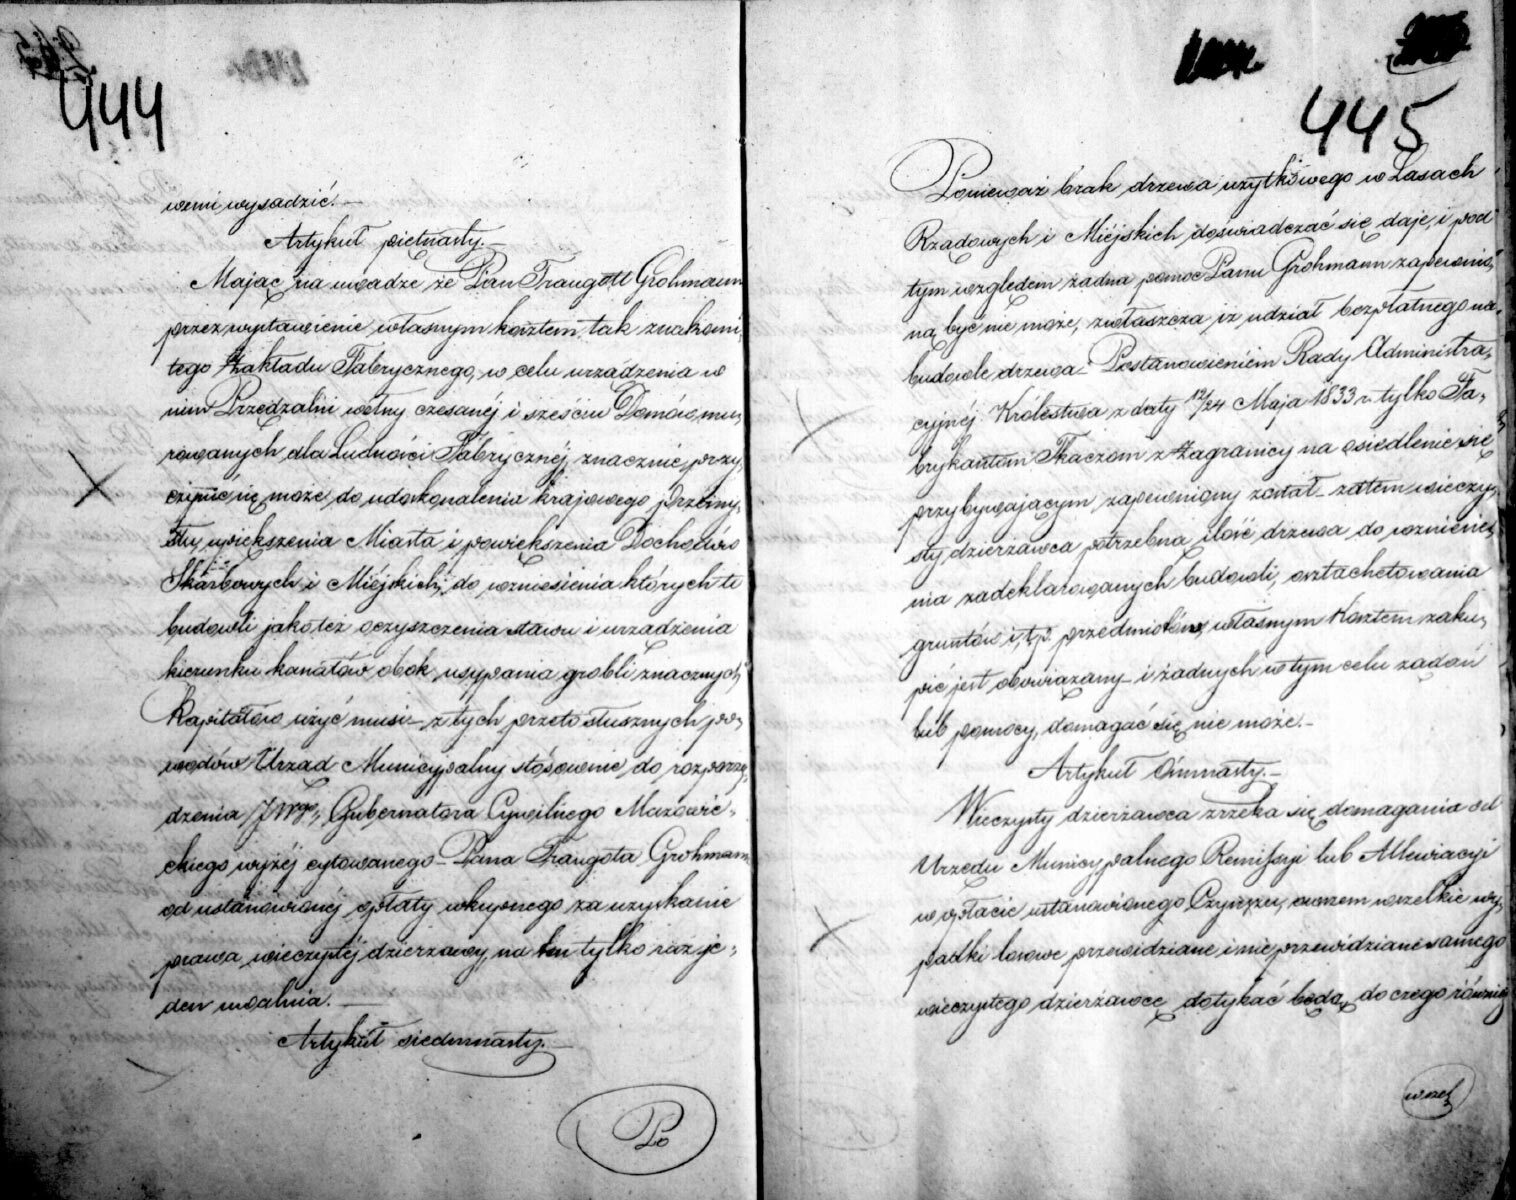 444
wemi wysadzić.—
Artykuł piętnasty.—
Mając na uwadze że Pan Traugott Grohmann
przez wystawienie własnym kosztem tak znakomi„
tego Zakładu Fabrycznego, w celu urządzenia w
nim Przędzalni wełny czesanéj i sześciu Domów mu„
rowanych dla Ludności Fabrycznéj, znacznie przy„
czynić się może do udoskonalenia krajowego Przemy„
słu, upiększenia Miasta i powiększenia Dochodów
Skarbowych i Miéjskich, do wzniesienia których to
budowli jakoteż oczyszczenia stawu i urządzenia
kierunku kanałów obok usypania grobli znacznych
Kapitałów użyć musi – z tych przeto słusznych po„
wodów Urząd Municypalny stósownie do rozporzą„
dzenia JWgo, Gubernatora Cywilnego Mazowie„
ckiego wyżéj cytowanego – Pana Traugota Grohmann
od ustanowionéj opłaty wkupnego za uzyskanie
prawa wieczystéj dzierzawy, na ten tylko raz je„
den uwalnia.—
Artykuł siedmnasty.—
Po
445
Ponieważ brak drzewa użytkowego w Lasach
Rządowych i Miéjskich doświadczać się daje, i pod
tym względem żadna pomoc Panu Grohmann zapewnio„
ną być nie może, zwłaszcza iż udział bezpłatnego na„
budowle drzewa – Postanowieniem Rady Administra„
cyjnéj Królestwa z daty 12/24 Maja 1833 r. tylko Fa„
brykantom Tkaczom z Zagranicy na osiedlenie się
przybywającym zapewniony został – zatem wieczy„
sty dzierżawca potrzebną ilość drzewa do wzniesie„
nia zadeklarowanych budowli, osztachetowania
gruntów i, t, p. przedmiotów, własnym kosztem zaku„
pić jest obowiązany – i żadnych w tym celu żądań
lub pomocy, domagać się nie może.—
Artykuł Ośmnasty.—
Wieczysty dzierżawca zrzeka się domagania od
Urzędu Municypalnego Remissyi lub Allewiacyi
w opłacie ustanowionego Czynszu, owszem wszelkie wy„
padki losowe przewidziane i nieprzewidziane samego
wieczystego dzierżawcę dotykać będą, do czego również
wszel